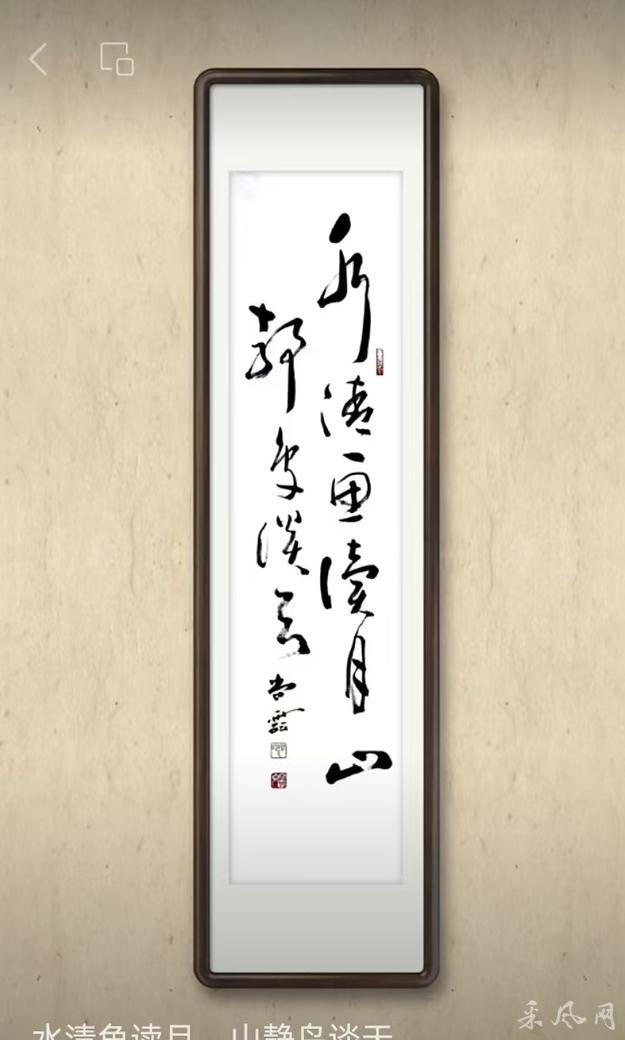 水清鱼读月山
静鸟谈天
尚云
采风网
水清鱼读月，山静鸟谈天